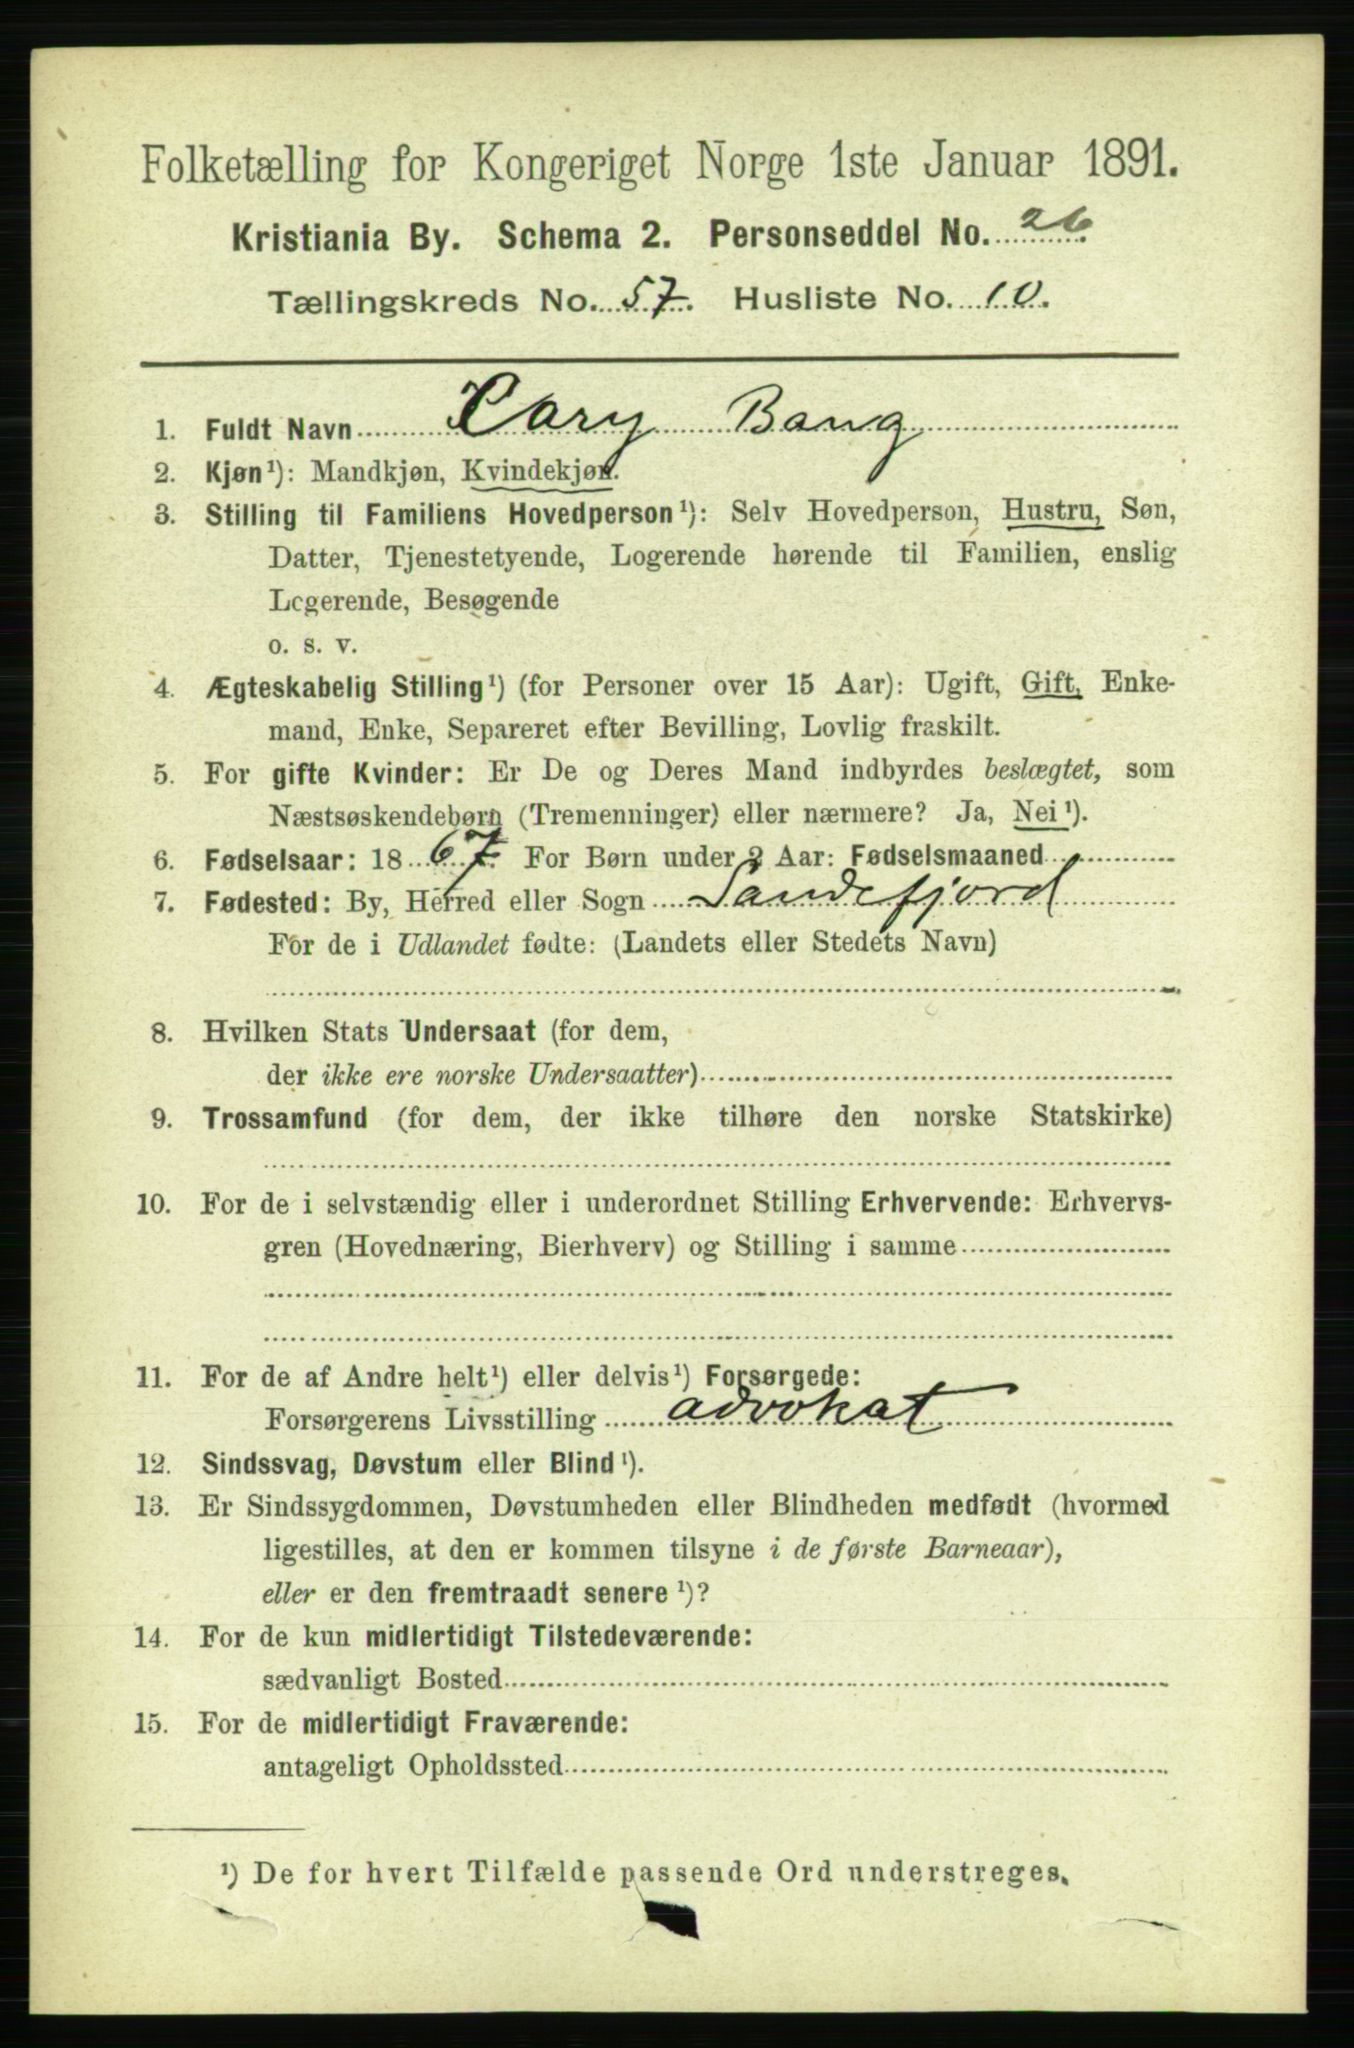 Folketælling for Kongeriget Norge 1ste Januar 1891.
Kristiania By. Schema 2. Personseddel No. 26
Tællingskreds No. 57. Husliste No. 10.
1. Fuldt Navn Cary Bang
2. Kjøn¹): Mandkjøn, Kvindekjøn.
3. Stilling til Familiens Hovedperson¹): Selv Hovedperson, Hustru, Søn,
Datter, Tjenestetyende, Logerende hørende til Familien, enslig
Logerende, Besøgende
o. s. v.
4. Ægteskabelig Stilling¹) (for Personer over 15 Aar): Ugift, Gift, Enke-
mand, Enke, Separeret efter Bevilling, Lovlig fraskilt.
5. For gifte Kvinder: Er De og Deres Mand indbyrdes beslægtet, som
Næstsøskendebørn (Tremenninger) eller nærmere? Ja, Nei¹).
6. Fødselsaar: 1867. For Børn under 2 Aar: Fødselsmaaned
7. Fødested: By, Herred eller Sogn Sandefjord
For de i Udlandet fødte: (Landets eller Stedets Navn)
8. Hvilken Stats Undersaat (for dem,
der ikke ere norske Undersaatter)
9. Trossamfund (for dem, der ikke tilhøre den norske Statskirke)
10. For de i selvstændig eller i underordnet Stilling Erhvervende: Erhvervs-
gren (Hovednæring, Bierhverv) og Stilling i samme
11. For de af Andre helt¹) eller delvis¹) Forsørgede:
Forsørgerens Livsstilling advokat
12. Sindssvag, Døvstum eller Blind¹).
13. Er Sindssygdommen, Døvstumheden eller Blindheden medfødt (hvormed
ligestilles, at den er kommen tilsyne i de første Barneaar),
eller er den fremtraadt senere¹)?
14. For de kun midlertidigt Tilstedeværende:
sædvanligt Bosted
15. For de midlertidigt Fraværende:
antageligt Opholdssted
¹) De for hvert Tilfælde passende Ord understreges.